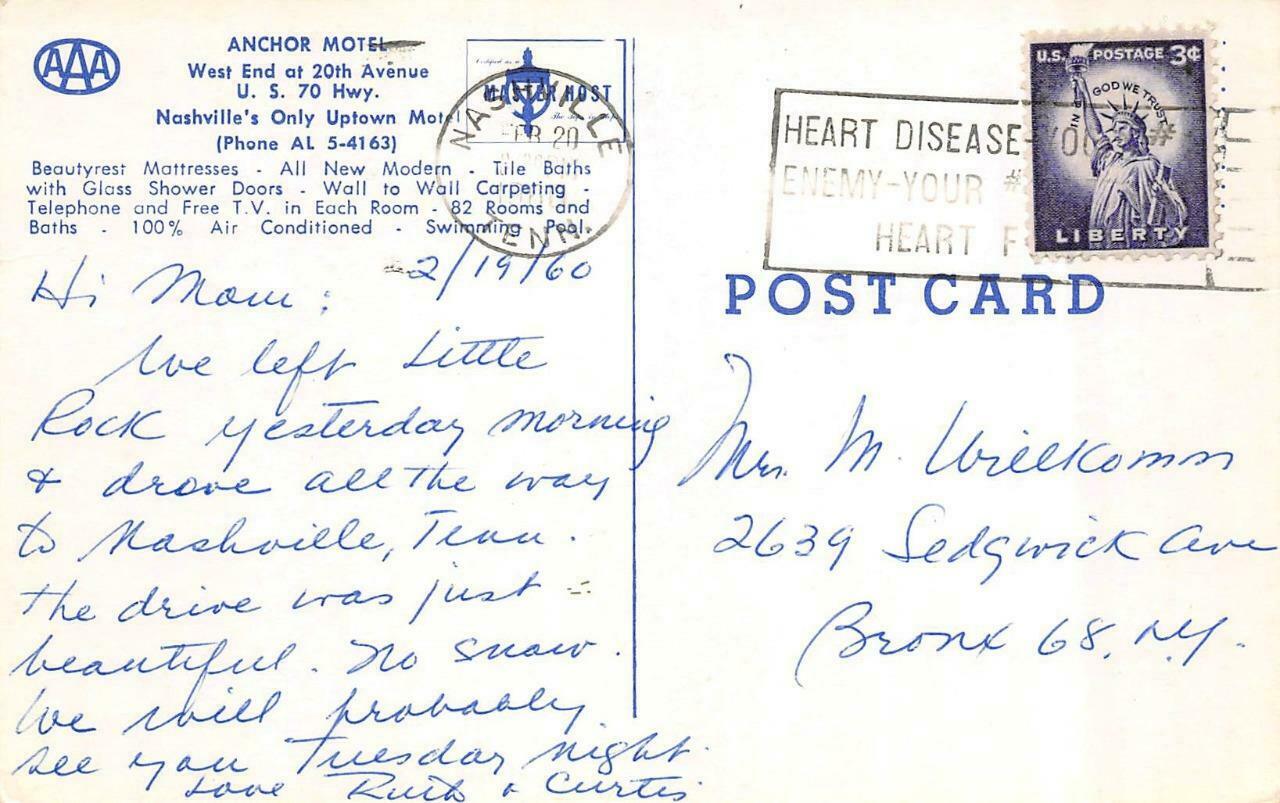 AAA
ANCHOR MOTEL
West End at 20th Avenue
U. S. 70 Hwy.
Nashville's Only Uptown Motel
(Phone AL 5-4163)
Beautyrest Mattresses - All New Modern - Tile Baths
with Glass Shower Doors - Wall to Wall Carpeting -
Telephone and Free T.V. in Each Room - 82 Rooms and
Baths - 100% Air Conditioned - Swimming Pool.
MASTER HOST
NASHVILLE
FEB 20
TENN.
2/19/60
Hi Mom:
We left Little
Rock yesterday morning
& drove all the way
to Nashville, Tenn.
The drive was just
beautiful. No snow.
We will probably
see you Tuesday night.
Love Ruth & Curtis
HEART DISEASE-YOUR #
ENEMY-YOUR #
HEART F
U.S. POSTAGE 3¢
IN GOD WE TRUST
LIBERTY
POST CARD
Mrs. M. Willkomm
2639 Sedgwick Ave
Bronx 68, N.Y.